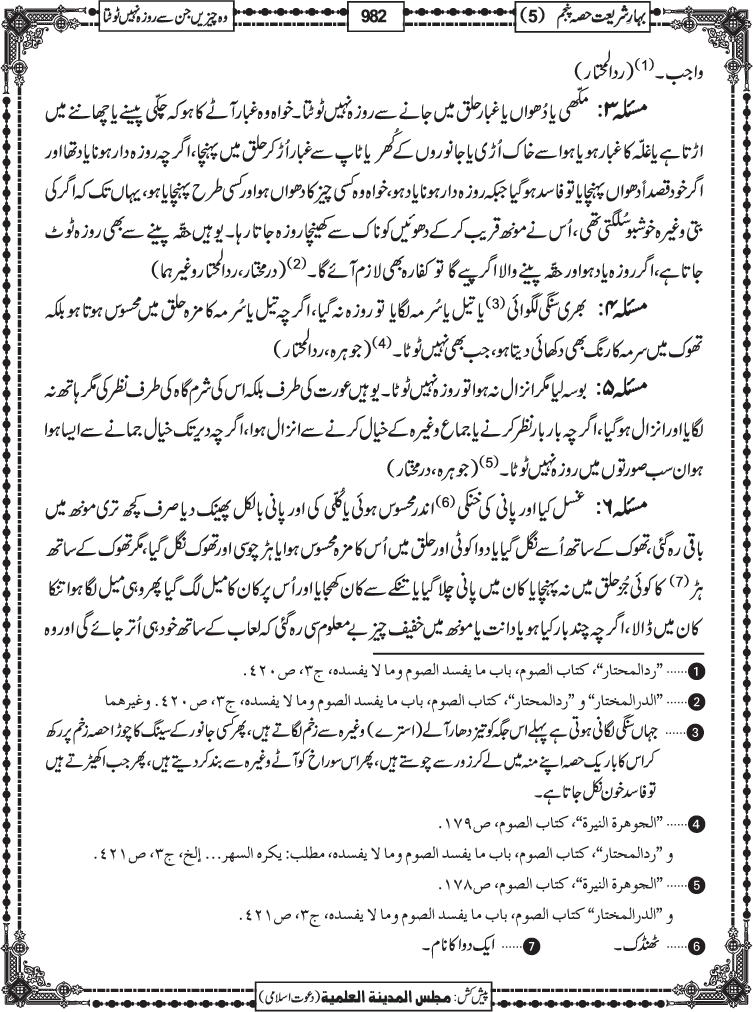 بہارِشریعت حصہ پنجم (5)
982
وہ چیزیں جن سے روزہ نہیں ٹوٹتا
واجب۔(1) (ردالمحتار)
مسئلہ ۳: مکھّی یا دُھواں یا غبار حلق میں جانے سے روزہ نہیں ٹوٹتا۔ خواہ وہ غبار آٹے کا ہو کہ چکّی پیسنے یا چھاننے میں
اڑتا ہے یا غلّہ کا غبار ہو یا ہوا سے خاک اُڑی یا جانوروں کے کُھر یا ٹاپ سے غبار اُڑ کر حلق میں پہنچا، اگرچہ روزہ دار ہونا یاد تھا اور
اگر خود قصداً دھواں پہنچایا تو فاسد ہوگیا جبکہ روزہ دار ہونا یاد ہو، خواہ وہ کسی چیز کا دھواں ہو اور کسی طرح پہنچایا ہو، یہاں تک کہ اگر کی
بتی وغیرہ خوشبو سُلگتی تھی، اُس نے مونھ قریب کر کے دھوئیں کو ناک سے کھینچا روزہ جاتا رہا۔ یوہیں حقّہ پینے سے بھی روزہ ٹوٹ
جاتا ہے، اگر روزہ یاد ہو اور حقّہ پینے والا اگر پیے گا تو کفارہ بھی لازم آئے گا۔(2) (درمختار، ردالمحتار وغیرہما)
مسئلہ ۴: بھری سنگی لگوائی (3) یا تیل یا سُرمہ لگایا تو روزہ نہ گیا، اگرچہ تیل یا سُرمہ کا مزہ حلق میں محسوس ہوتا ہو بلکہ
تھوک میں سرمہ کا رنگ بھی دکھائی دیتا ہو، جب بھی نہیں ٹوٹا۔(4) (جوہرہ، ردالمحتار)
مسئلہ ۵: بوسہ لیا مگر انزال نہ ہوا تو روزہ نہیں ٹوٹا۔ یوہیں عورت کی طرف بلکہ اس کی شرم گاہ کی طرف نظر کی مگر ہاتھ نہ
لگایا اور انزال ہوگیا، اگرچہ بار بار نظر کرنے یا جماع وغیرہ کے خیال کرنے سے انزال ہوا، اگرچہ دیر تک خیال جمانے سے ایسا ہوا
ہو ان سب صورتوں میں روزہ نہیں ٹوٹا۔(5) (جوہرہ، درمختار)
مسئلہ ۶: غسل کیا اور پانی کی خنکی (6) اندر محسوس ہوئی یا کُلّی کی اور پانی بالکل پھینک دیا صرف کچھ تری مونھ میں
باقی رہ گئی، تھوک کے ساتھ اُسے نگل گیا یا دوا کوٹی اور حلق میں اُس کا مزہ محسوس ہوا یا ہڑ چوسی اور تھوک نگل گیا، مگر تھوک کے ساتھ
ہڑ (7) کا کوئی جُز حلق میں نہ پہنچا یا کان میں پانی چلا گیا یا تنکے سے کان کھجایا اور اُس پر کان کا میل لگ گیا پھر وہی میل لگا ہوا تنکا
کان میں ڈالا، اگرچہ چند بار کیا ہو یا دانت یا مونھ میں خفیف چیز بے معلوم سی رہ گئی کہ لعاب کے ساتھ خود ہی اُتر جائے گی اور وہ
1 ...... "ردالمحتار"، کتاب الصوم، باب ما یفسد الصوم وما لا یفسدہ، ج۳، ص۴۲۰.
2 ...... "الدرالمختار" و "ردالمحتار"، کتاب الصوم، باب ما یفسد الصوم وما لا یفسدہ، ج۳، ص۴۲۰. وغیرھما
3 ...... جہاں سنگی لگانی ہوتی ہے پہلے اس جگہ کو تیز دھار آلے (استرے) وغیرہ سے زخم لگاتے ہیں، پھر کسی جانور کے سینگ کا چوڑا حصہ زخم پر رکھ
کر اس کا باریک حصہ اپنے منہ میں لے کر زور سے چوستے ہیں، پھر اس سوراخ کو آٹے وغیرہ سے بند کر دیتے ہیں، پھر جب اکھیڑتے ہیں
تو فاسد خون نکل جاتا ہے۔
4 ...... "الجوھرۃ النیرۃ"، کتاب الصوم، ص۱۷۹.
و "ردالمحتار"، کتاب الصوم، باب ما یفسد الصوم وما لا یفسدہ، مطلب: یکرہ السھر... إلخ، ج۳، ص۴۲۱.
5 ...... "الجوھرۃ النیرۃ"، کتاب الصوم، ص۱۷۸.
و "الدرالمختار" کتاب الصوم، باب ما یفسد الصوم وما لا یفسدہ، ج۳، ص۴۲۱.
6 ...... ٹھنڈک۔ 7 ...... ایک دوا کا نام۔
پیش کش: مجلس المدینۃ العلمیۃ (دعوت اسلامی)